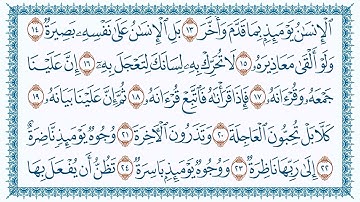 ٱلْإِنسَٰنُ يَوْمَئِذٍۭ بِمَا قَدَّمَ وَأَخَّرَ ١٣ بَلِ ٱلْإِنسَٰنُ عَلَىٰ نَفْسِهِۦ بَصِيرَةٌ ١٤
وَلَوْ أَلْقَىٰ مَعَاذِيرَهُۥ ١٥ لَا تُحَرِّكْ بِهِۦ لِسَانَكَ لِتَعْجَلَ بِهِۦٓ ١٦ إِنَّ عَلَيْنَا
جَمْعَهُۥ وَقُرْءَانَهُۥ ١٧ فَإِذَا قَرَأْنَٰهُ فَٱتَّبِعْ قُرْءَانَهُۥ ١٨ ثُمَّ إِنَّ عَلَيْنَا بَيَانَهُۥ ١٩
كَلَّا بَلْ تُحِبُّونَ ٱلْعَاجِلَةَ ٢٠ وَتَذَرُونَ ٱلْءَاخِرَةَ ٢١ وُجُوهٌ يَوْمَئِذٍ نَّاضِرَةٌ
٢٢ إِلَىٰ رَبِّهَا نَاظِرَةٌ ٢٣ وَوُجُوهٌ يَوْمَئِذٍۭ بَاسِرَةٌ ٢٤ تَظُنُّ أَن يُفْعَلَ بِهَا